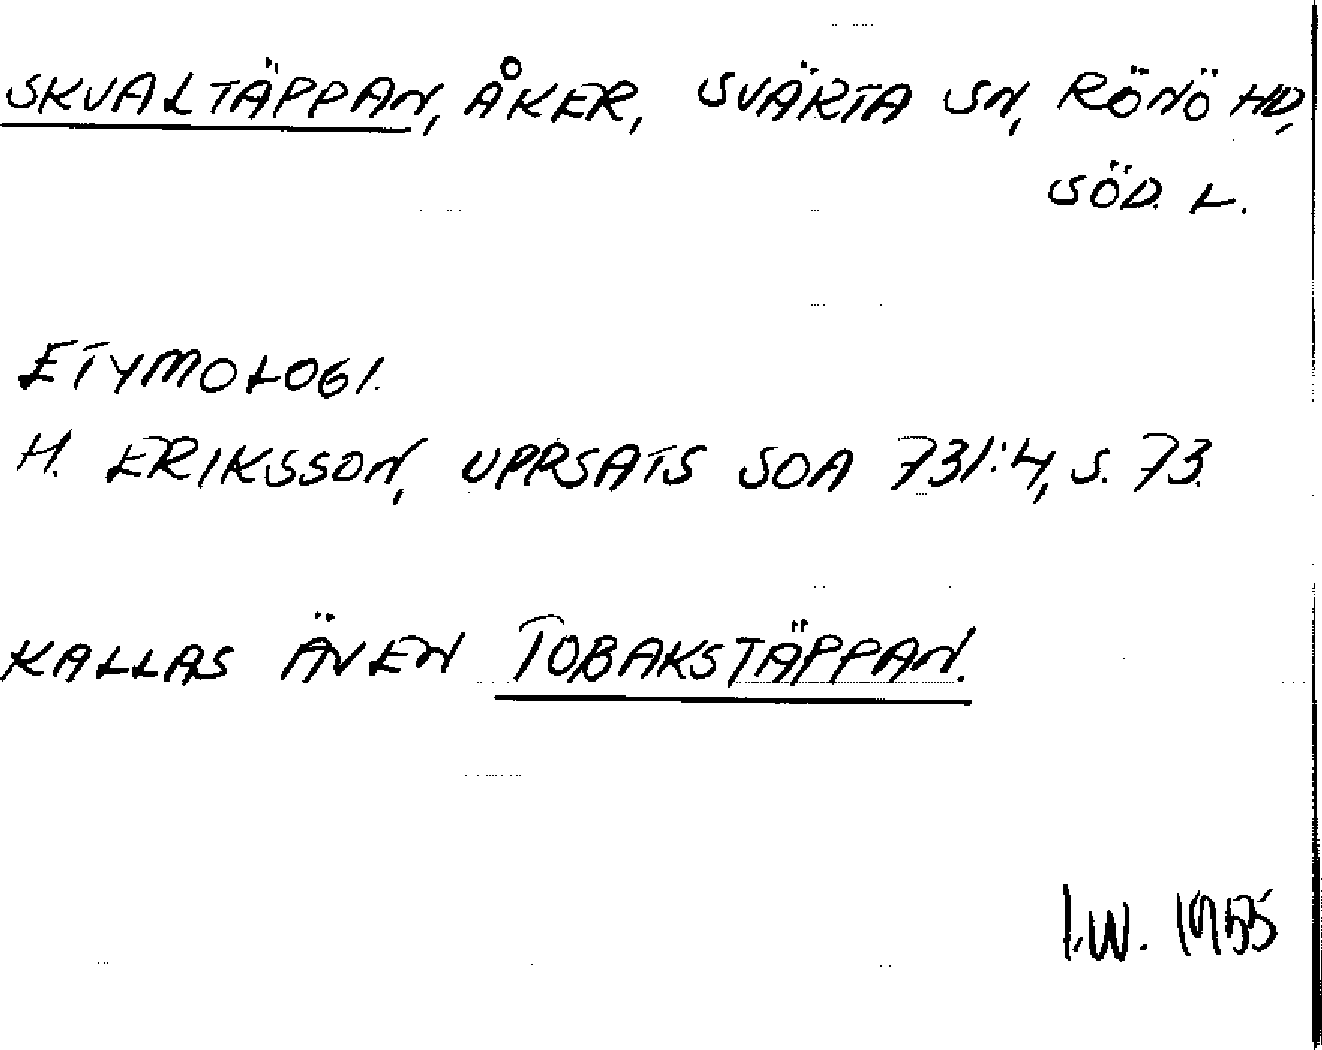 SKVALTÄPPAN, ÅKER, SVÄRTA SN, RÖNÖ HD,
SÖD. L.
ETYMOLOGI.
H. ERIKSSON, UPPSATS SOA 731:4, S. 73.
KALLAS ÄVEN TOBAKSTÄPPAN.
I.W. 1955